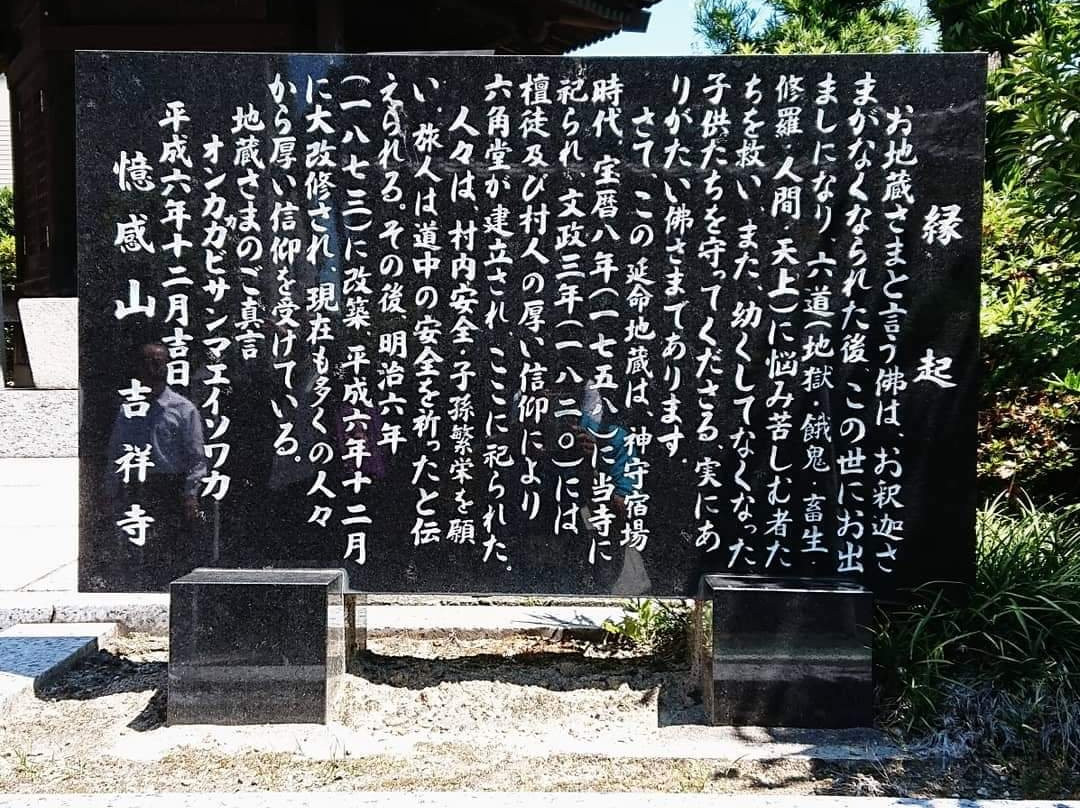 縁起
お地蔵さまと言う佛は、お釈迦さ
まがなくなられた後、この世にお出
ましになり、六道(地獄・餓鬼・畜生・
修羅・人間・天上)に悩み苦しむ者た
ちを救い、また、幼くしてなくなった
子供たちを守ってくださる、実にあ
りがたい佛さまであります。
さて、この延命地蔵は、神守宿場
時代、宝暦八年(一七五八)に当寺に
祀られ、文政三年(一八二〇)には
檀徒及び村人の厚い信仰により
六角堂が建立され、ここに祀られた。
人々は、村内安全・子孫繁栄を願
い、旅人は道中の安全を祈ったと伝
えられる。その後、明治六年
(一八七三)に改築、平成六年十二月
に大改修され、現在も多くの人々
から厚い信仰を受けている。
地蔵さまのご真言
オンカカカビサンマエイソワカ
平成六年十二月吉日
憶感山吉祥寺